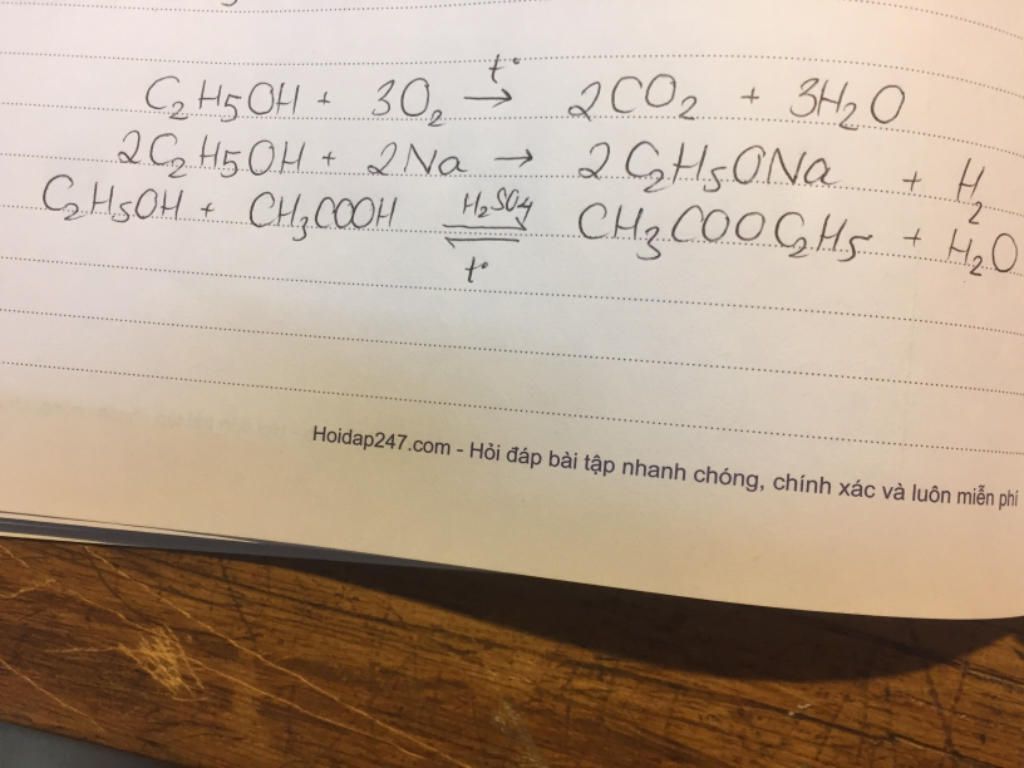 C₂H₅OH + 3O₂ →(t°) 2CO₂ + 3H₂O
2C₂H₅OH + 2Na → 2C₂H₅ONa + H₂
C₂H₅OH + CH₃COOH ⇌(H₂SO₄, t°) CH₃COOC₂H₅ + H₂O
Hoidap247.com - Hỏi đáp bài tập nhanh chóng, chính xác và luôn miễn phí